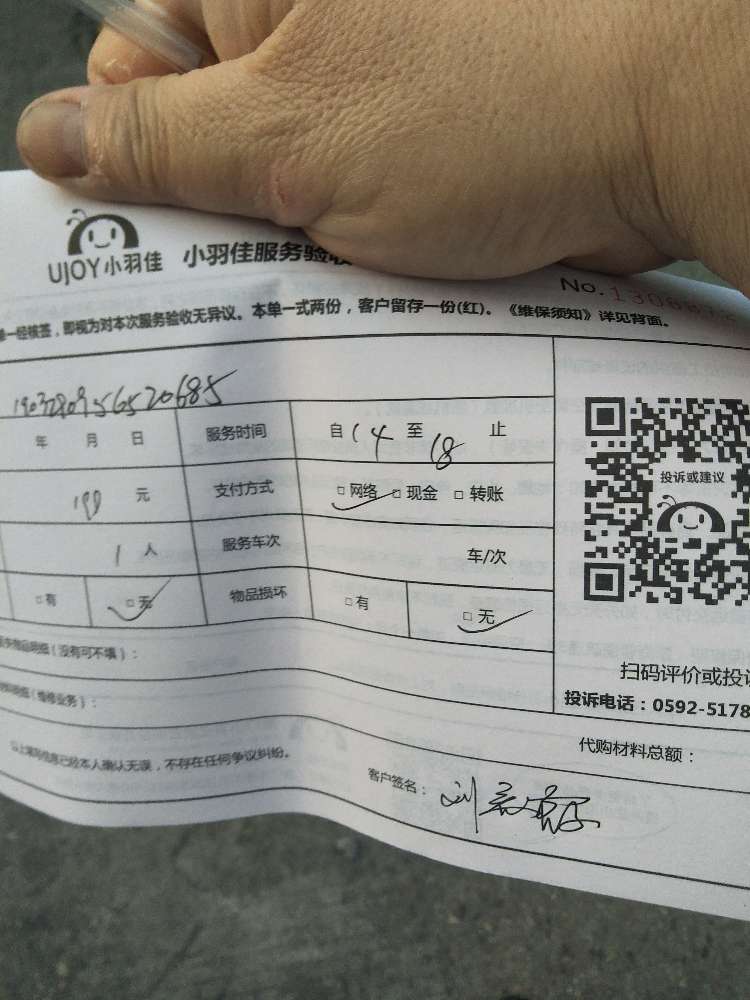 UJOY小羽佳 小羽佳服务验收
No.
单一经核签，即视为对本次服务验收无异议。本单一式两份，客户留存一份(红)。《维保须知》详见背面。
1903280956520685
年 月 日 服务时间 自 14 至 18 止
199 元 支付方式 □ 网络 □ 现金 □ 转账
1 人 服务车次 车/次
□ 有 □ 无 物品损坏 □ 有 □ 无
物品明细（没有可不填）：
明细（维修业务）：
以上填写信息已经本人确认无误，不存在任何争议纠纷。
客户签名：
投诉或建议
扫码评价或投诉
投诉电话：0592-5178
代购材料总额：